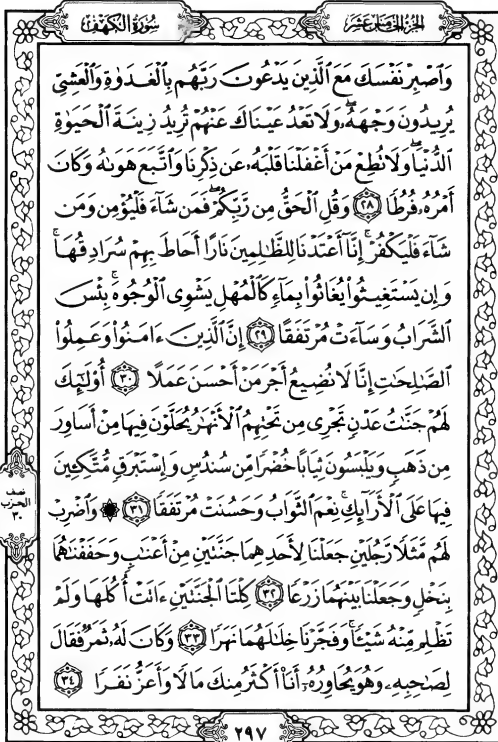 سُورَةُ الكَهْفِ
الجُزْءُ الخَامِسَ عَشَرَ
وَٱصْبِرْ نَفْسَكَ مَعَ ٱلَّذِينَ يَدْعُونَ رَبَّهُم بِٱلْغَدَوٰةِ وَٱلْعَشِىِّ
يُرِيدُونَ وَجْهَهُۥۖ وَلَا تَعْدُ عَيْنَاكَ عَنْهُمْ تُرِيدُ زِينَةَ ٱلْحَيَوٰةِ
ٱلدُّنْيَاۖ وَلَا تُطِعْ مَنْ أَغْفَلْنَا قَلْبَهُۥ عَن ذِكْرِنَا وَٱتَّبَعَ هَوَىٰهُ وَكَانَ
أَمْرُهُۥ فُرُطًا ٢٨ وَقُلِ ٱلْحَقُّ مِن رَّبِّكُمْۖ فَمَن شَآءَ فَلْيُؤْمِن وَمَن
شَآءَ فَلْيَكْفُرْۚ إِنَّآ أَعْتَدْنَا لِلظَّٰلِمِينَ نَارًا أَحَاطَ بِهِمْ سُرَادِقُهَاۚ
وَإِن يَسْتَغِيثُوا۟ يُغَاثُوا۟ بِمَآءٍ كَٱلْمُهْلِ يَشْوِى ٱلْوُجُوهَۚ بِئْسَ
ٱلشَّرَابُ وَسَآءَتْ مُرْتَفَقًا ٢٩ إِنَّ ٱلَّذِينَ ءَامَنُوا۟ وَعَمِلُوا۟
ٱلصَّٰلِحَٰتِ إِنَّا لَا نُضِيعُ أَجْرَ مَنْ أَحْسَنَ عَمَلًا ٣٠ أُو۟لَٰٓئِكَ
لَهُمْ جَنَّٰتُ عَدْنٍ تَجْرِى مِن تَحْتِهِمُ ٱلْأَنْهَٰرُ يُحَلَّوْنَ فِيهَا مِنْ أَسَاوِرَ
مِن ذَهَبٍ وَيَلْبَسُونَ ثِيَابًا خُضْرًا مِّن سُندُسٍ وَإِسْتَبْرَقٍ مُّتَّكِـِٔينَ
فِيهَا عَلَى ٱلْأَرَآئِكِۚ نِعْمَ ٱلثَّوَابُ وَحَسُنَتْ مُرْتَفَقًا ٣١ ۞ وَٱضْرِبْ
لَهُم مَّثَلًا رَّجُلَيْنِ جَعَلْنَا لِأَحَدِهِمَا جَنَّتَيْنِ مِنْ أَعْنَٰبٍ وَحَفَفْنَٰهُمَا
بِنَخْلٍ وَجَعَلْنَا بَيْنَهُمَا زَرْعًا ٣٢ كِلْتَا ٱلْجَنَّتَيْنِ ءَاتَتْ أُكُلَهَا وَلَمْ
تَظْلِم مِّنْهُ شَيْـًٔاۚ وَفَجَّرْنَا خِلَٰلَهُمَا نَهَرًا ٣٣ وَكَانَ لَهُۥ ثَمَرٌ فَقَالَ
لِصَٰحِبِهِۦ وَهُوَ يُحَاوِرُهُۥٓ أَنَا۠ أَكْثَرُ مِنكَ مَالًا وَأَعَزُّ نَفَرًا ٣٤
نصف
الحزب
٣٠
٢٩٧